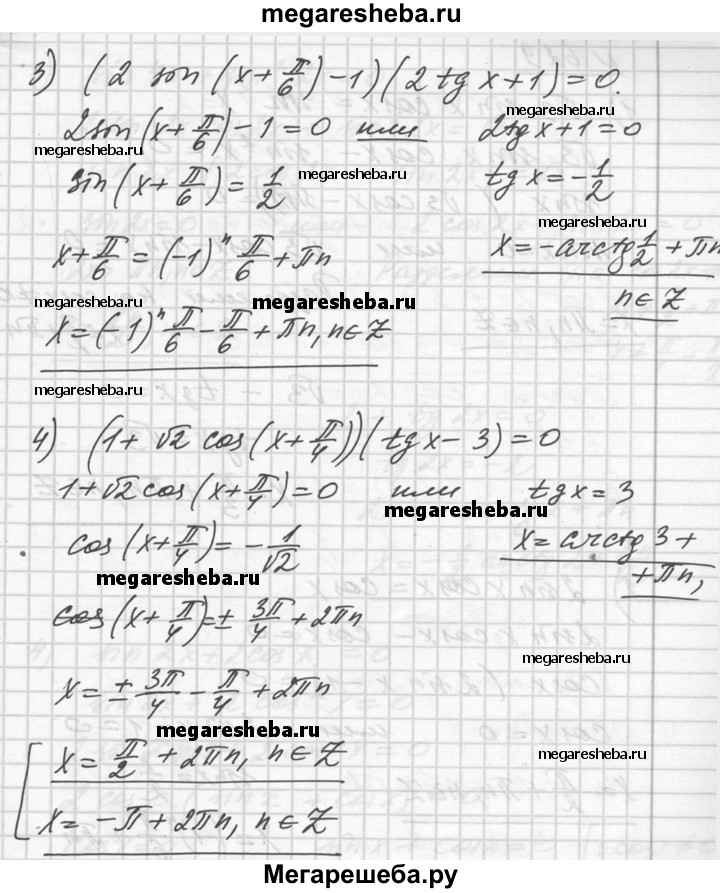 megaresheba.ru
3) (2 sin (x + π/6) - 1)(2 tg x + 1) = 0.
megaresheba.ru
2 sin (x + π/6) - 1 = 0 или 2tg x + 1 = 0
megaresheba.ru
sin (x + π/6) = 1/2 megaresheba.ru tg x = - 1/2
megaresheba.ru
x + π/6 = (-1)ⁿ π/6 + πn x = - arctg 1/2 + πn
megaresheba.ru megaresheba.ru n ∈ Z
x = (-1)ⁿ π/6 - π/6 + πn, n ∈ Z
megaresheba.ru megaresheba.ru
4) (1 + √2 cos (x + π/4))(tg x - 3) = 0
1 + √2 cos (x + π/4) = 0 или tg x = 3
megaresheba.ru
cos (x + π/4) = - 1/√2 x = arctg 3 +
megaresheba.ru + πn,
cos (x + π/4) = ± 3π/4 + 2πn
megaresheba.ru
x = ± 3π/4 - π/4 + 2πn
megaresheba.ru
x = π/2 + 2πn, n ∈ Z megaresheba.ru
x = - π + 2πn, n ∈ Z
Мегарешеба.ру